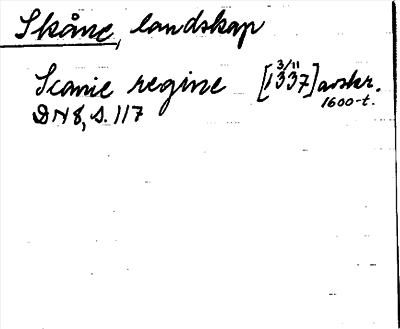 Skåne, landskap
Scanie regine [1337] avskr.
3/11
1600-t.
DN 8, s. 117